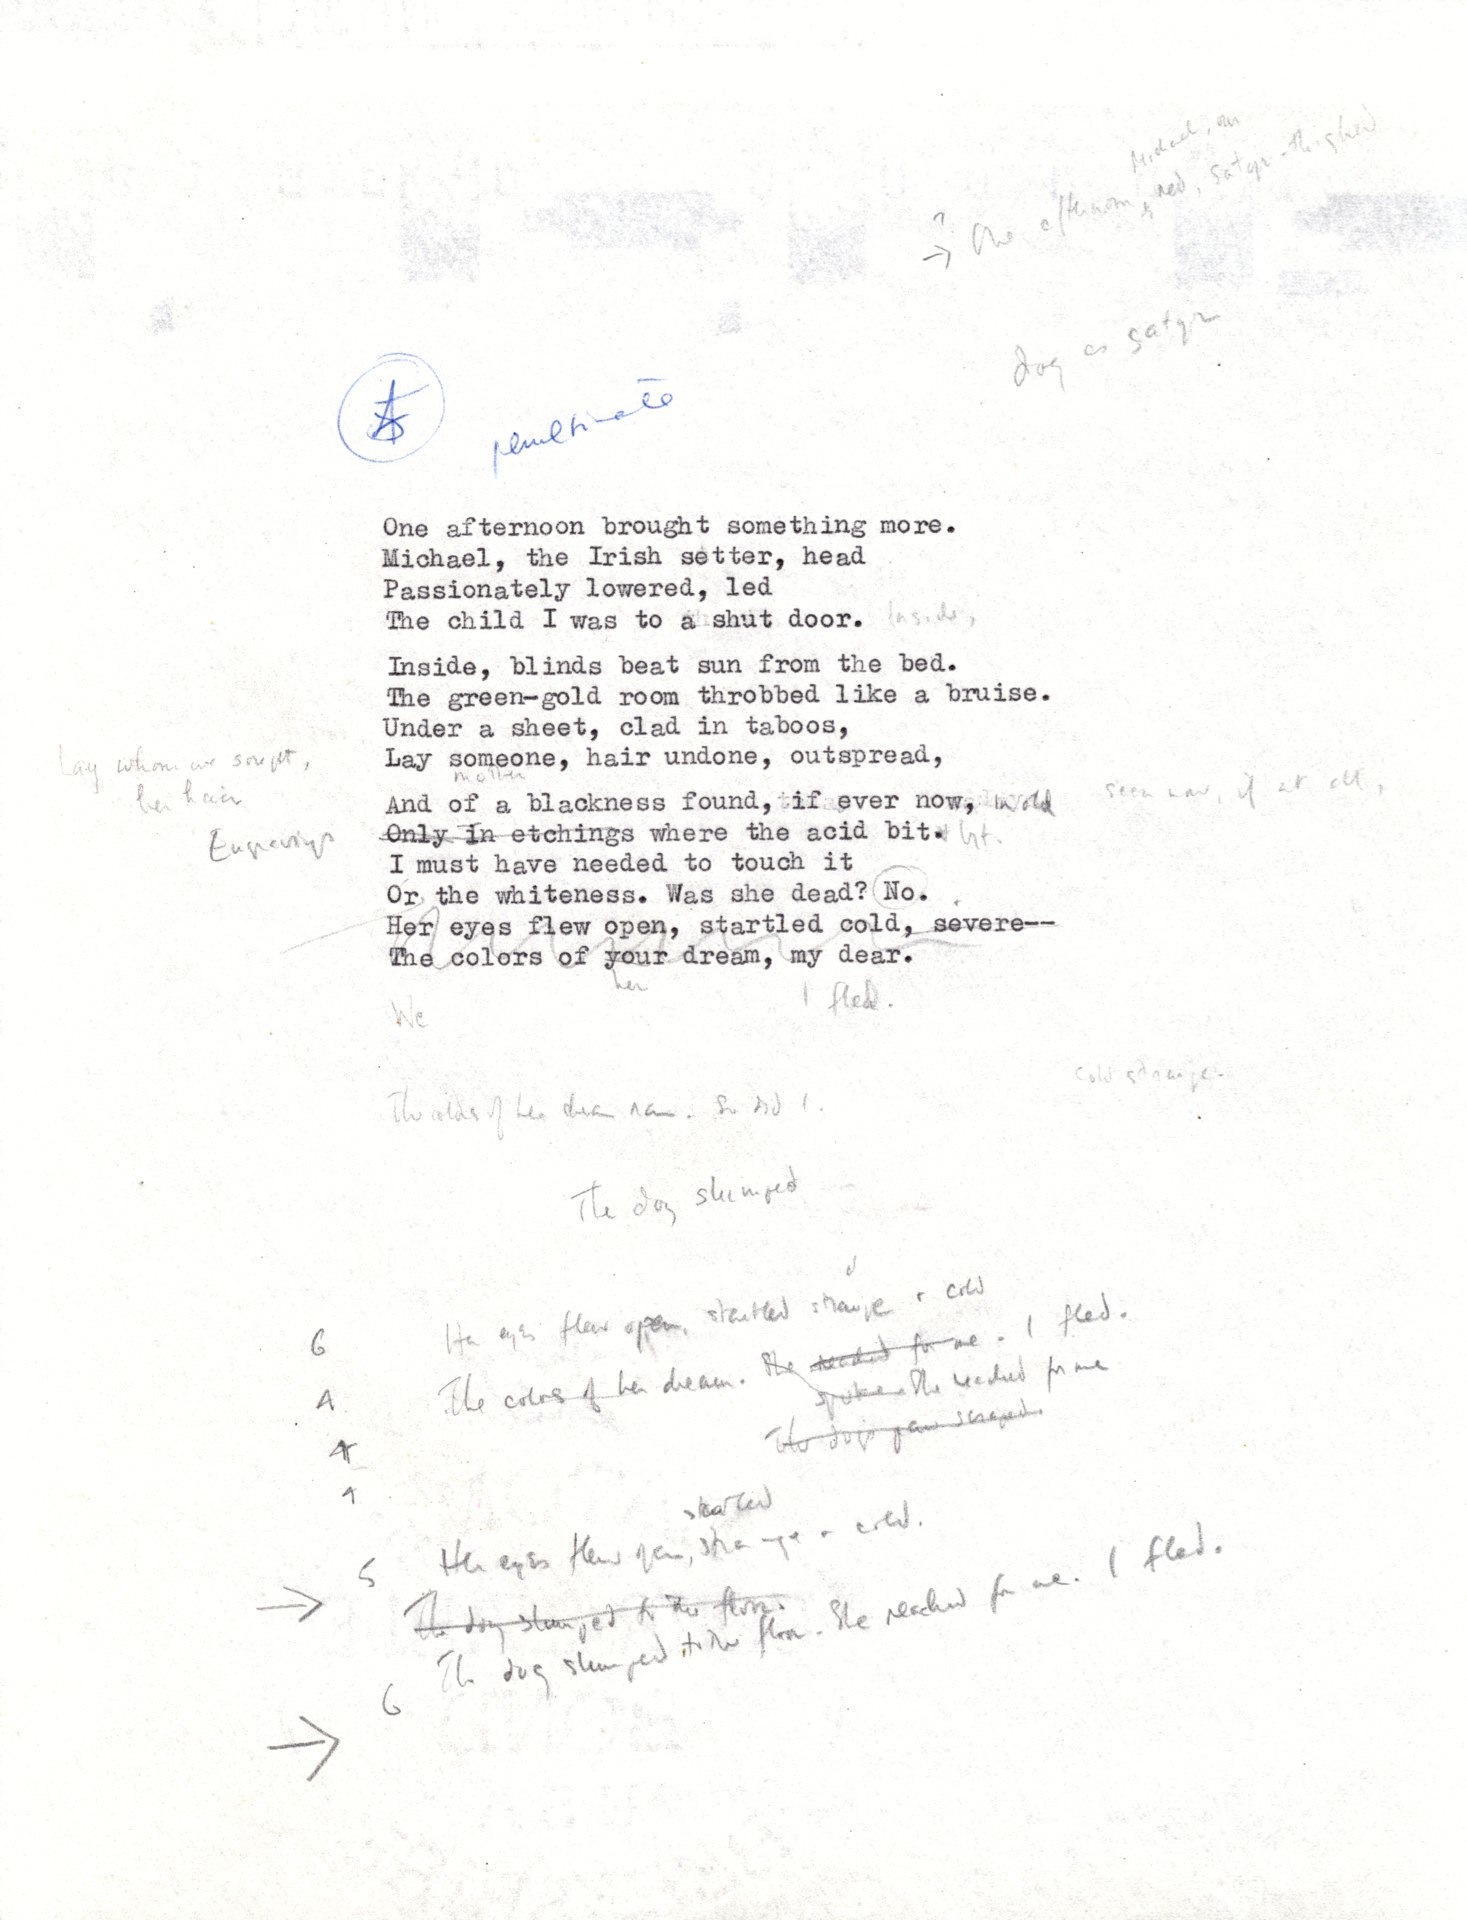 Michael, our
? → One afternoon, red, satyr-thighed
dog as satyr
penultimate
One afternoon brought something more.
Michael, the Irish setter, head
Passionately lowered, led
The child I was to a shut door. Inside,
Inside, blinds beat sun from the bed.
The green-gold room throbbed like a bruise.
Under a sheet, clad in taboos,
Lay whom we sought,
Lay someone, hair undone, outspread,
her hair
mother
And of a blackness found, if ever now, in old seen now, if at all,
Engravings
Only in etchings where the acid bit. bit.
I must have needed to touch it
Or the whiteness. Was she dead? No.
Her eyes flew open, startled cold, severe--
The colors of your dream, my dear.
her
I fled.
We
cold strange
The colors of her dream ran. So did I.
The dog slumped
6 Her eyes flew open, startled strange + cold
A The colors of her dream. She reached for me. I fled.
spoke She reached for me
The dog's paw scraped.
startled
5 Her eyes flew open, strange + cold.
→ The dog slumped to the floor.
The dog slumped to the floor. She reached for me. I fled.
6
→